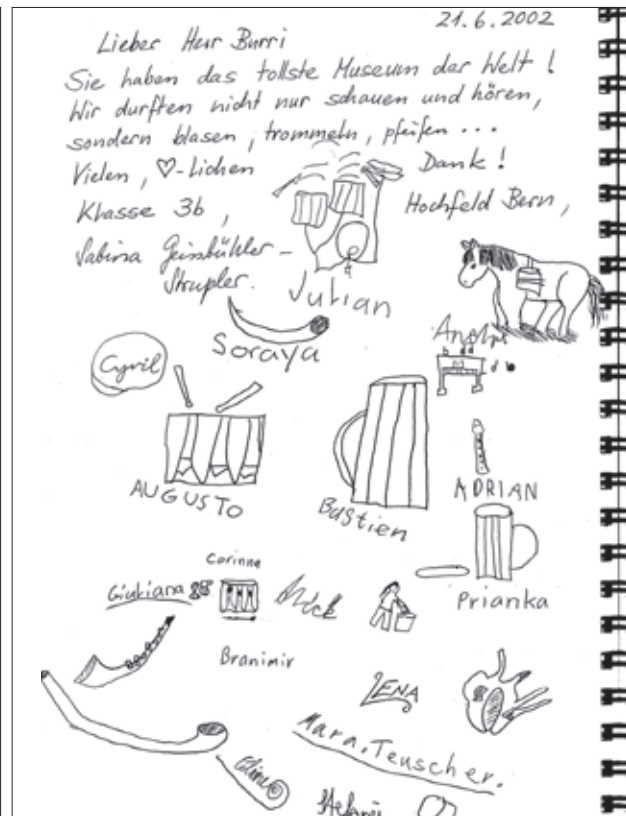 21.6.2002
Lieber Herr Burri
Sie haben das tollste Museum der Welt!
Wir durften nicht nur schauen und hören,
sondern blasen, trommeln, pfeifen ...
Vielen, ♡-lichen Dank!
Klasse 3b, Hochfeld Bern,
Sabina Geissbühler-
Strupler.
Julian
Soraya
Cyril
AUGUSTO
Bastien
ADRIAN
Prianka
Corinna
Giuliana
Branimir
LENA
Mara.Teuscher.